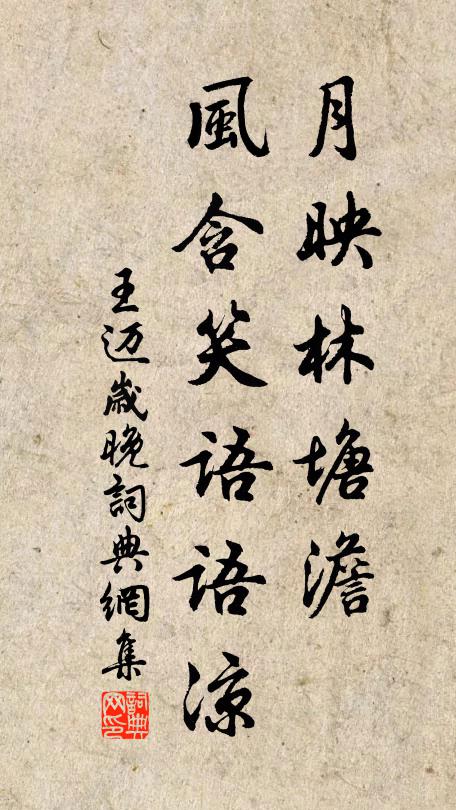 月映林塘澹
風含笑語語涼
王迈歲晚詞典網集
詞典网印